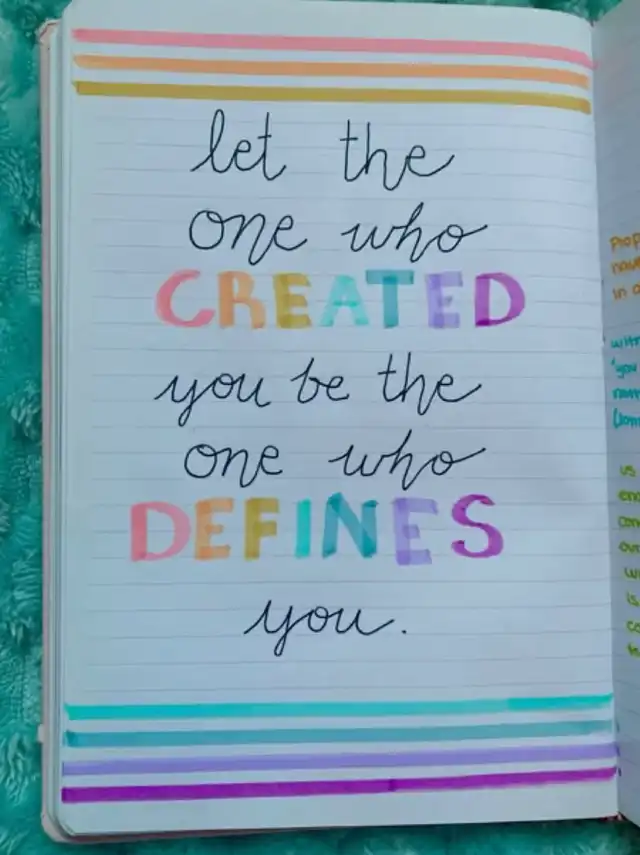 let the
one who
CREATED
you be the
one who
DEFINES
you.
in a
"you
is